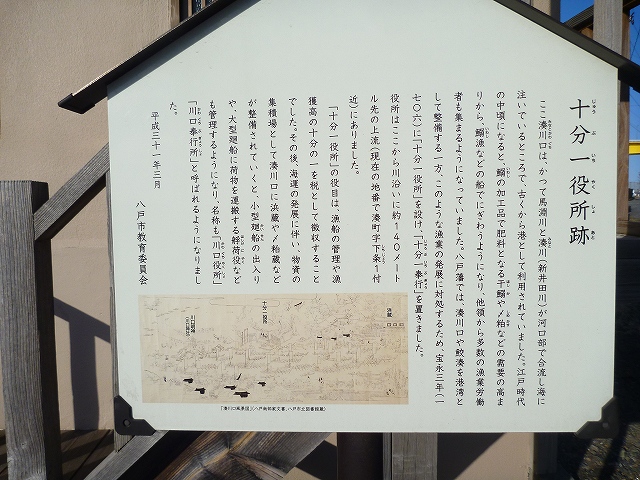 十分一役所跡
じゅうぶいちやくしょあと
ここ湊川口は、かつて馬淵川と湊川(新井田川)が河口部で合流し海に
注いでいるところで、古くから港として利用されていました。江戸時代
の中頃になると、鰯の加工品で肥料となる干鰯や〆粕などの需要の高ま
りから、鰯漁などの船でにぎわうようになり、他領から多数の漁業労働
者も集まるようになっていました。八戸藩では、湊川口や鮫湊を港湾と
して整備する一方、このような漁業の発展に対処するため、宝永三年(一
七〇六)に「十分一役所」を設け、「十分一奉行」を置きました。
役所はここから川沿いに約140メート
ル先の上流(現在の地番で湊町字下条1付
近)にありました。
「十分一役所」の役目は、漁船の管理や漁
獲高の十分の一を税として徴収すること
でした。その後、海運の発展に伴い、物資の
集積場として湊川口に浜蔵や〆粕蔵など
が整備されていくと、小型廻船の出入り
や、大型廻船に荷物を運搬する艀荷役など
も管理するようになり、名称も「川口役所」
「川口奉行所」と呼ばれるようになりまし
た。
平成三十一年三月
八戸市教育委員会
浜蔵
十分一役所
「湊川口風景図」(八戸南部家文書、八戸市立図書館蔵)